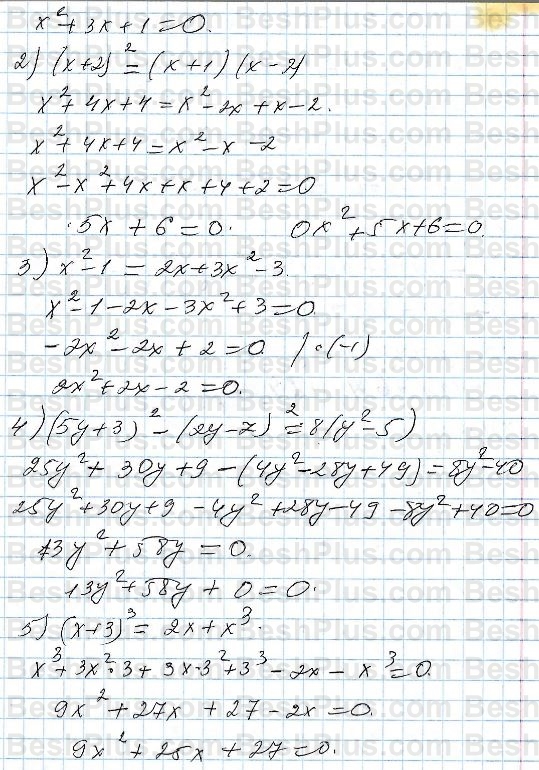 x² + 3x + 1 = 0.
2) (x+2)² = (x+1)(x-2)
x² + 4x + 4 = x² - 2x + x - 2.
x² + 4x + 4 = x² - x - 2
x² - x² + 4x + x + 4 + 2 = 0
5x + 6 = 0. 0x² + 5x + 6 = 0.
3) x² - 1 = 2x + 3x² - 3.
x² - 1 - 2x - 3x² + 3 = 0.
-2x² - 2x + 2 = 0. / · (-1)
2x² + 2x - 2 = 0.
4) (5y+3)² - (2y-7)² = 8(y² - 5)
25y² + 30y + 9 - (4y² - 28y + 49) = 8y² - 40
25y² + 30y + 9 - 4y² + 28y - 49 - 8y² + 40 = 0
13y² + 58y = 0.
13y² + 58y + 0 = 0.
5) (x+3)³ = 2x + x³.
x³ + 3x²·3 + 3x·3² + 3³ - 2x - x³ = 0.
9x² + 27x + 27 - 2x = 0.
9x² + 25x + 27 = 0.